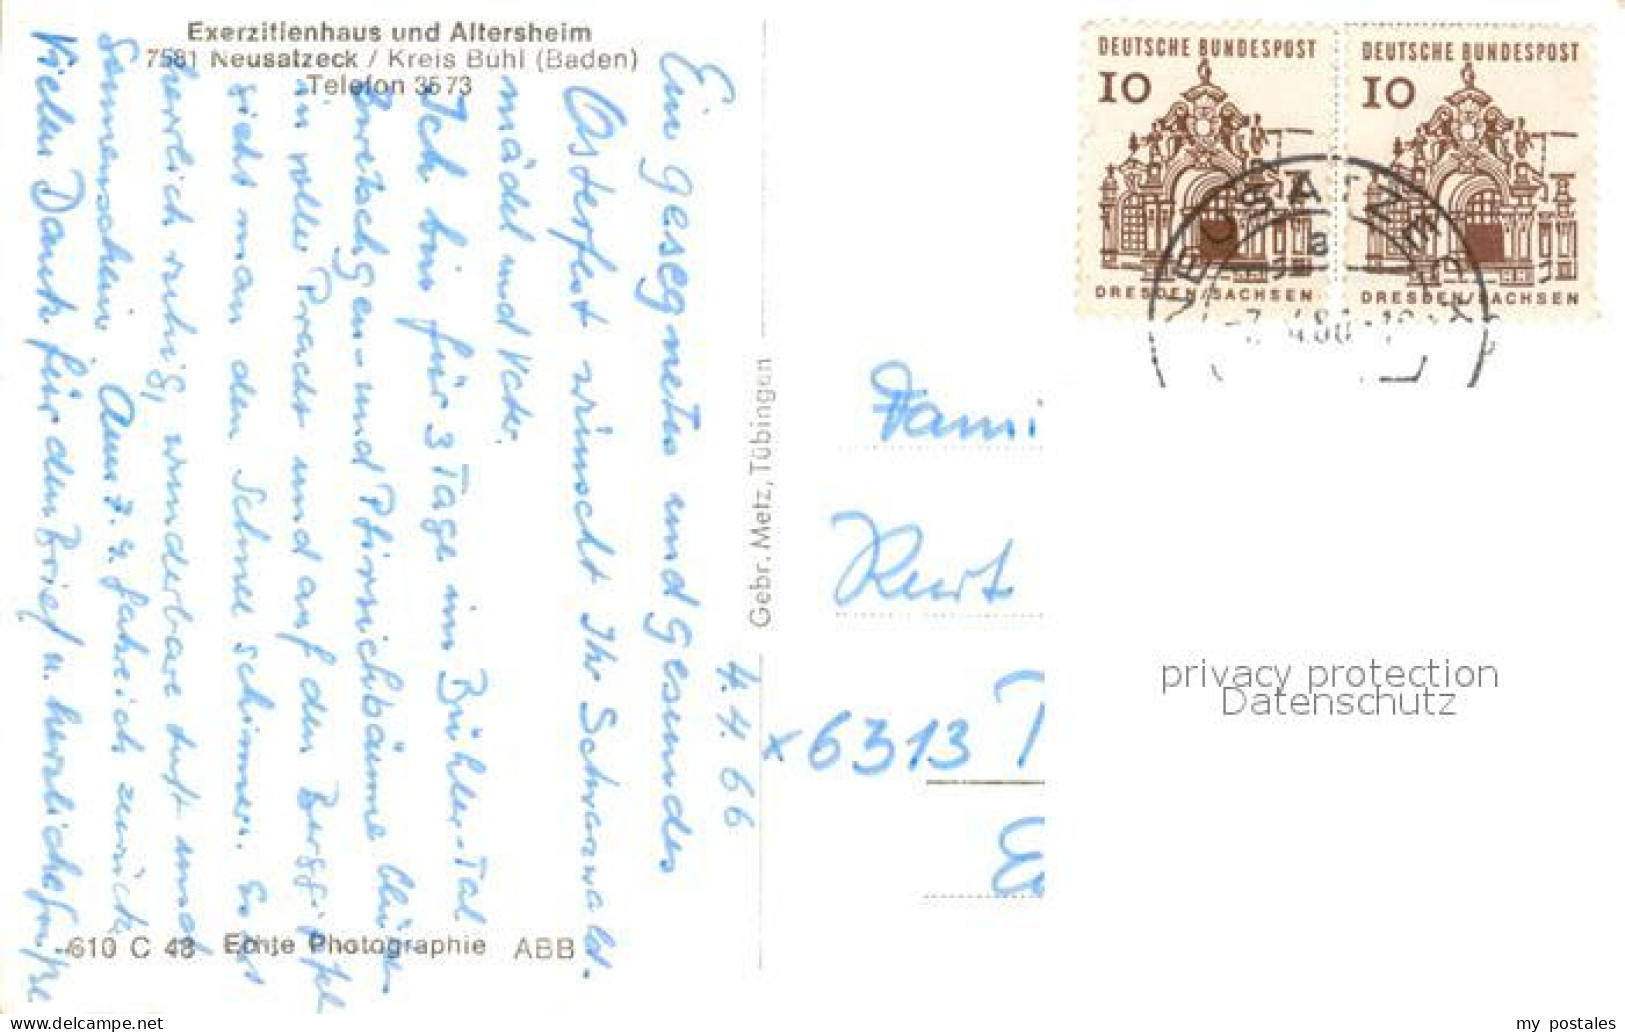 Exerzitienhaus und Altersheim
7581 Neusatzeck / Kreis Bühl (Baden)
Telefon 3573
4. 4. 66
Ein gesegnetes und gesundes
Osterfest wünscht Ihr Schwarzwald-
mädel und Vater.
Ich bin für 3 Tage im Bühler-Tal
und Pfirsichbäume blühen
in voller Pracht und auf den
sieht man den Schnee schimmern. Es ist
herrlich ruhig, wunderbare Luft und
Sonnenschein. Am 7. 4. fahre ich zurück
Vielen Dank für den Brief u. herzliche Grüße
610 C 48 Echte Photographie ABB
Gebr. Metz, Tübingen
DEUTSCHE BUNDESPOST
10
DRESDEN/SACHSEN
DEUTSCHE BUNDESPOST
10
DRESDEN/SACHSEN
NEUSATZECK
a
Fami
Kurt
x 6313
privacy protection
Datenschutz
my_postales
www.delcampe.net